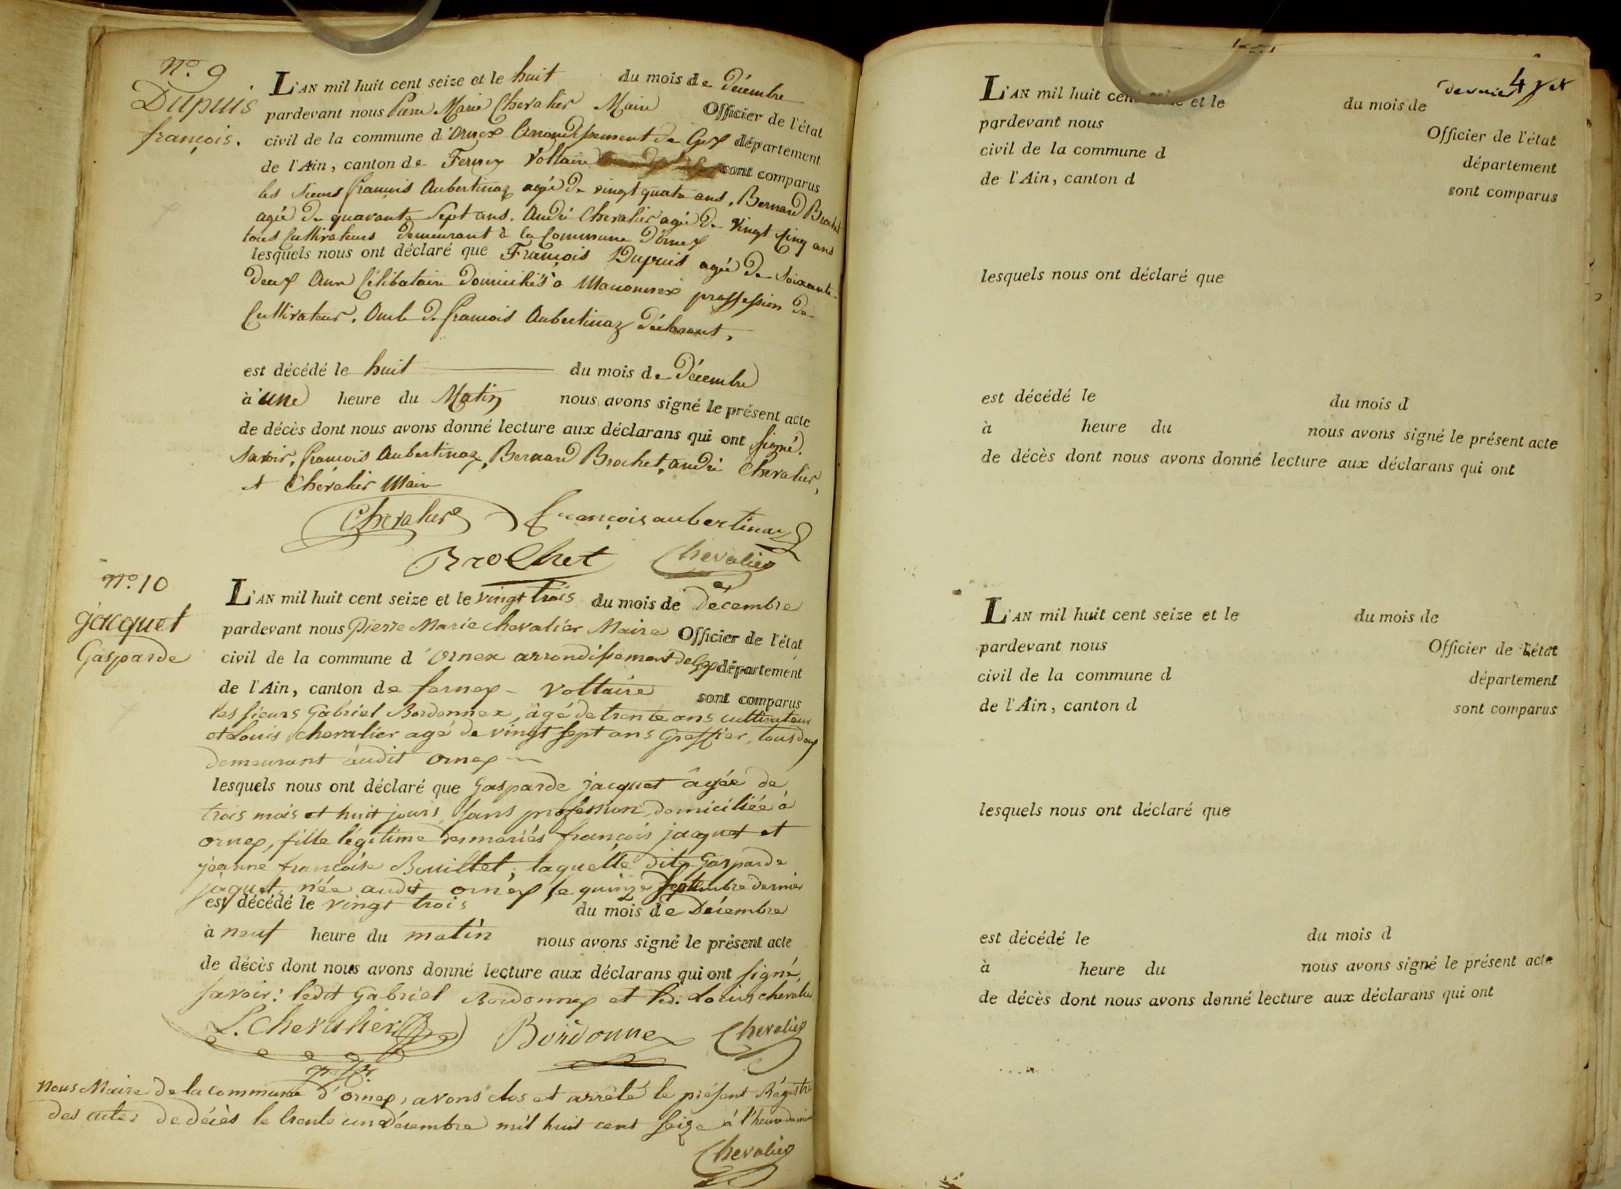 N.o 9
Dupuis
françois.
L'AN mil huit cent seize et le huit du mois de Décembre
pardevant nous Marie Chevalier Maire Officier de l'état
civil de la commune d'Ornex arrondissement de Gex département
de l'Ain, canton de Ferney Voltaire sont comparus
les sieurs françois Aubertinaz agé de vingt quatre ans, Bernard Brochet
agé de quarante sept ans. André Chevalier agé de vingt cinq ans
tous Cultivateurs demeurant à la Commune d'Ornex
lesquels nous ont déclaré que François Dupuis agé de Soixante
deux Ans Célibataire domicilié à Maconnex proffession de
Cultivateur. Oncle de francois Aubertinaz déclarant,
est décédé le huit du mois de Décembre
à une heure du Matin nous avons signé le présent acte
de décès dont nous avons donné lecture aux déclarans qui ont signé.
Savoir, francois Aubertinaz, Bernard Brochet, andré Chevalier,
et Chevalier Maire
Chevalier françois aubertinaz
Brochet Chevalier
N.o 10
jacquet
Gasparde
L'AN mil huit cent seize et le vingt trois du mois de Décembre
pardevant nous Pierre Marie chevalier Maire Officier de l'état
civil de la commune d'Ornex arrondissement de Gex département
de l'Ain, canton de fernex - Voltaire sont comparus
les sieurs Gabriel Bordonnex, âgé de trente ans cultivateur
et Louis chevalier agé de vingt sept ans Greffier, tous deux
demeurant audit ornex
lesquels nous ont déclaré que Gasparde jacquet âgée de
trois mois et huit jours, sans profession, domiciliée à
ornex, fille légitime des mariés françois jacquet et
jeanne françoise Bouillet, laquelle dite Gasparde
jaquet, née audit ornex le quinze septembre dernier
est décédé le vingt trois du mois de Décembre
à neuf heure du matin nous avons signé le présent acte
de décès dont nous avons donné lecture aux déclarans qui ont signé,
savoir: ledit Gabriel Bordonnex et led. Louis chevalier
L. Chevalier Bordonnex Chevalier
Nous Maire de la commune d'ornex, avons clos et arrêté le présent Régistre
des actes de décès le trente un décembre mil huit cent seize à l'heure de
Chevalier
4
L'AN mil huit cent seize et le du mois de
pardevant nous Officier de l'état
civil de la commune d département
de l'Ain, canton d sont comparus
lesquels nous ont déclaré que
est décédé le du mois d
à heure du nous avons signé le présent acte
de décès dont nous avons donné lecture aux déclarans qui ont
L'AN mil huit cent seize et le du mois de
pardevant nous Officier de l'état
civil de la commune d département
de l'Ain, canton d sont comparus
lesquels nous ont déclaré que
est décédé le du mois d
à heure du nous avons signé le présent acte
de décès dont nous avons donné lecture aux déclarans qui ont